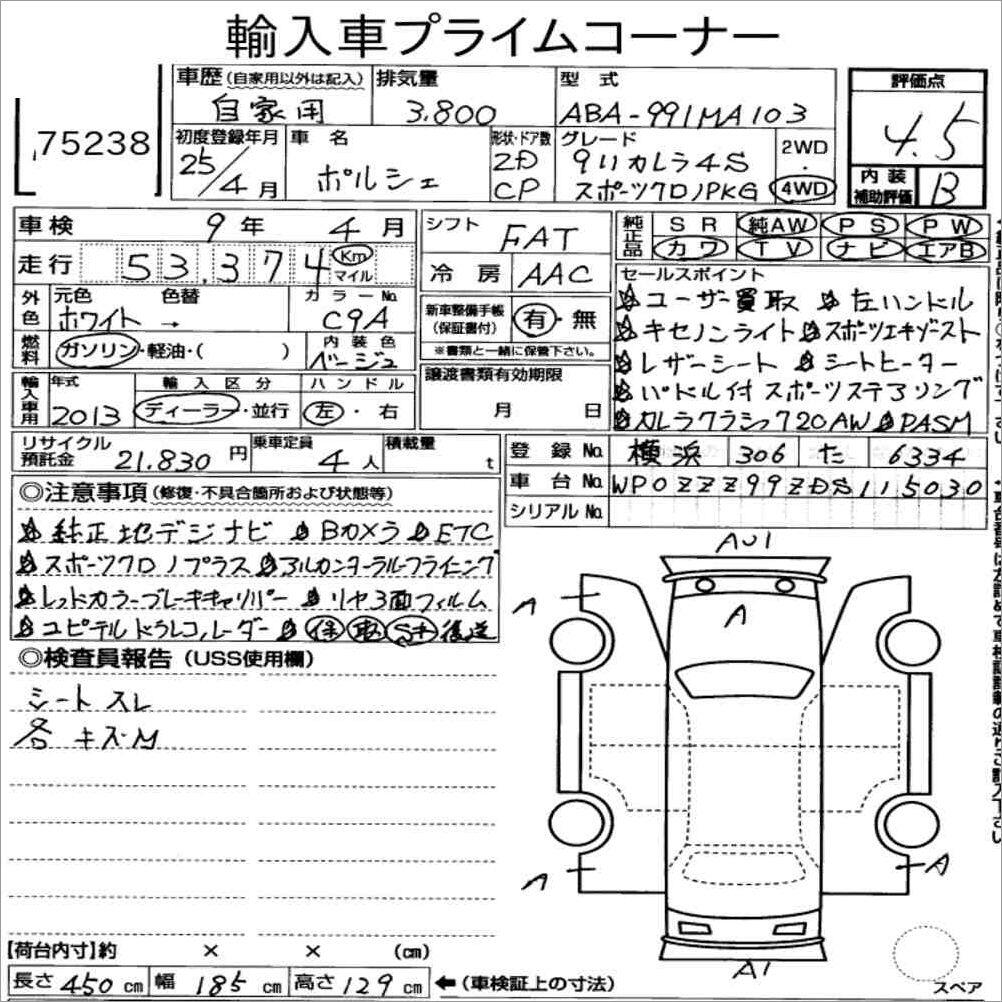 輸入車プライムコーナー
75238
車歴(自家用以外は記入) 排気量 型式 評価点
自家用 3.800 ABA-991MA103 4.5
初度登録年月 車名 形状・ドア数 グレード 2WD・4WD 内装補助評価
25/4月 ポルシェ 2D CP 911カレラ4S スポーツクロノPKG B
車検 9年 4月
走行 53.374 Km マイル
外色 元色 色替 カラーNo.
ホワイト → C9A
燃料 ガソリン・軽油・( ) 内装色 ベージュ
輸入車用 年式 輸入区分 ハンドル
2013 ディーラー・並行 左・右
リサイクル預託金 21.830円 乗車定員 4人 積載量 t
シフト FAT
冷房 AAC
新車整備手帳(保証書付) 有・無
※書類と一緒に保管下さい。
譲渡書類有効期限
月 日
純正品 SR 純AW PS PW
カワ TV ナビ エアB
セールスポイント
ユーザー買取 左ハンドル
キセノンライト スポーツエキゾースト
レザーシート シートヒーター
パドル付スポーツステアリング
カレラクラシック20AW PASM
登録No. 横浜 306 た 6334
車台No. WP0ZZZ99ZDS115030
シリアルNo.
◎注意事項(修復・不具合箇所および状態等)
純正地デジナビ Bカメラ ETC
スポーツクロノプラス アルカンターラルーフライニング
レッドカラーブレーキキャリパー リヤ3面フィルム
ユピテルドラレコ,レーダー 保 取 後送
◎検査員報告(USS使用欄)
シートスレ
各キズM
AU1
A
A
A
A
A1
スペア
【荷台内寸】約 × × (cm)
長さ 450cm 幅 185cm 高さ 129cm ←(車検証上の寸法)